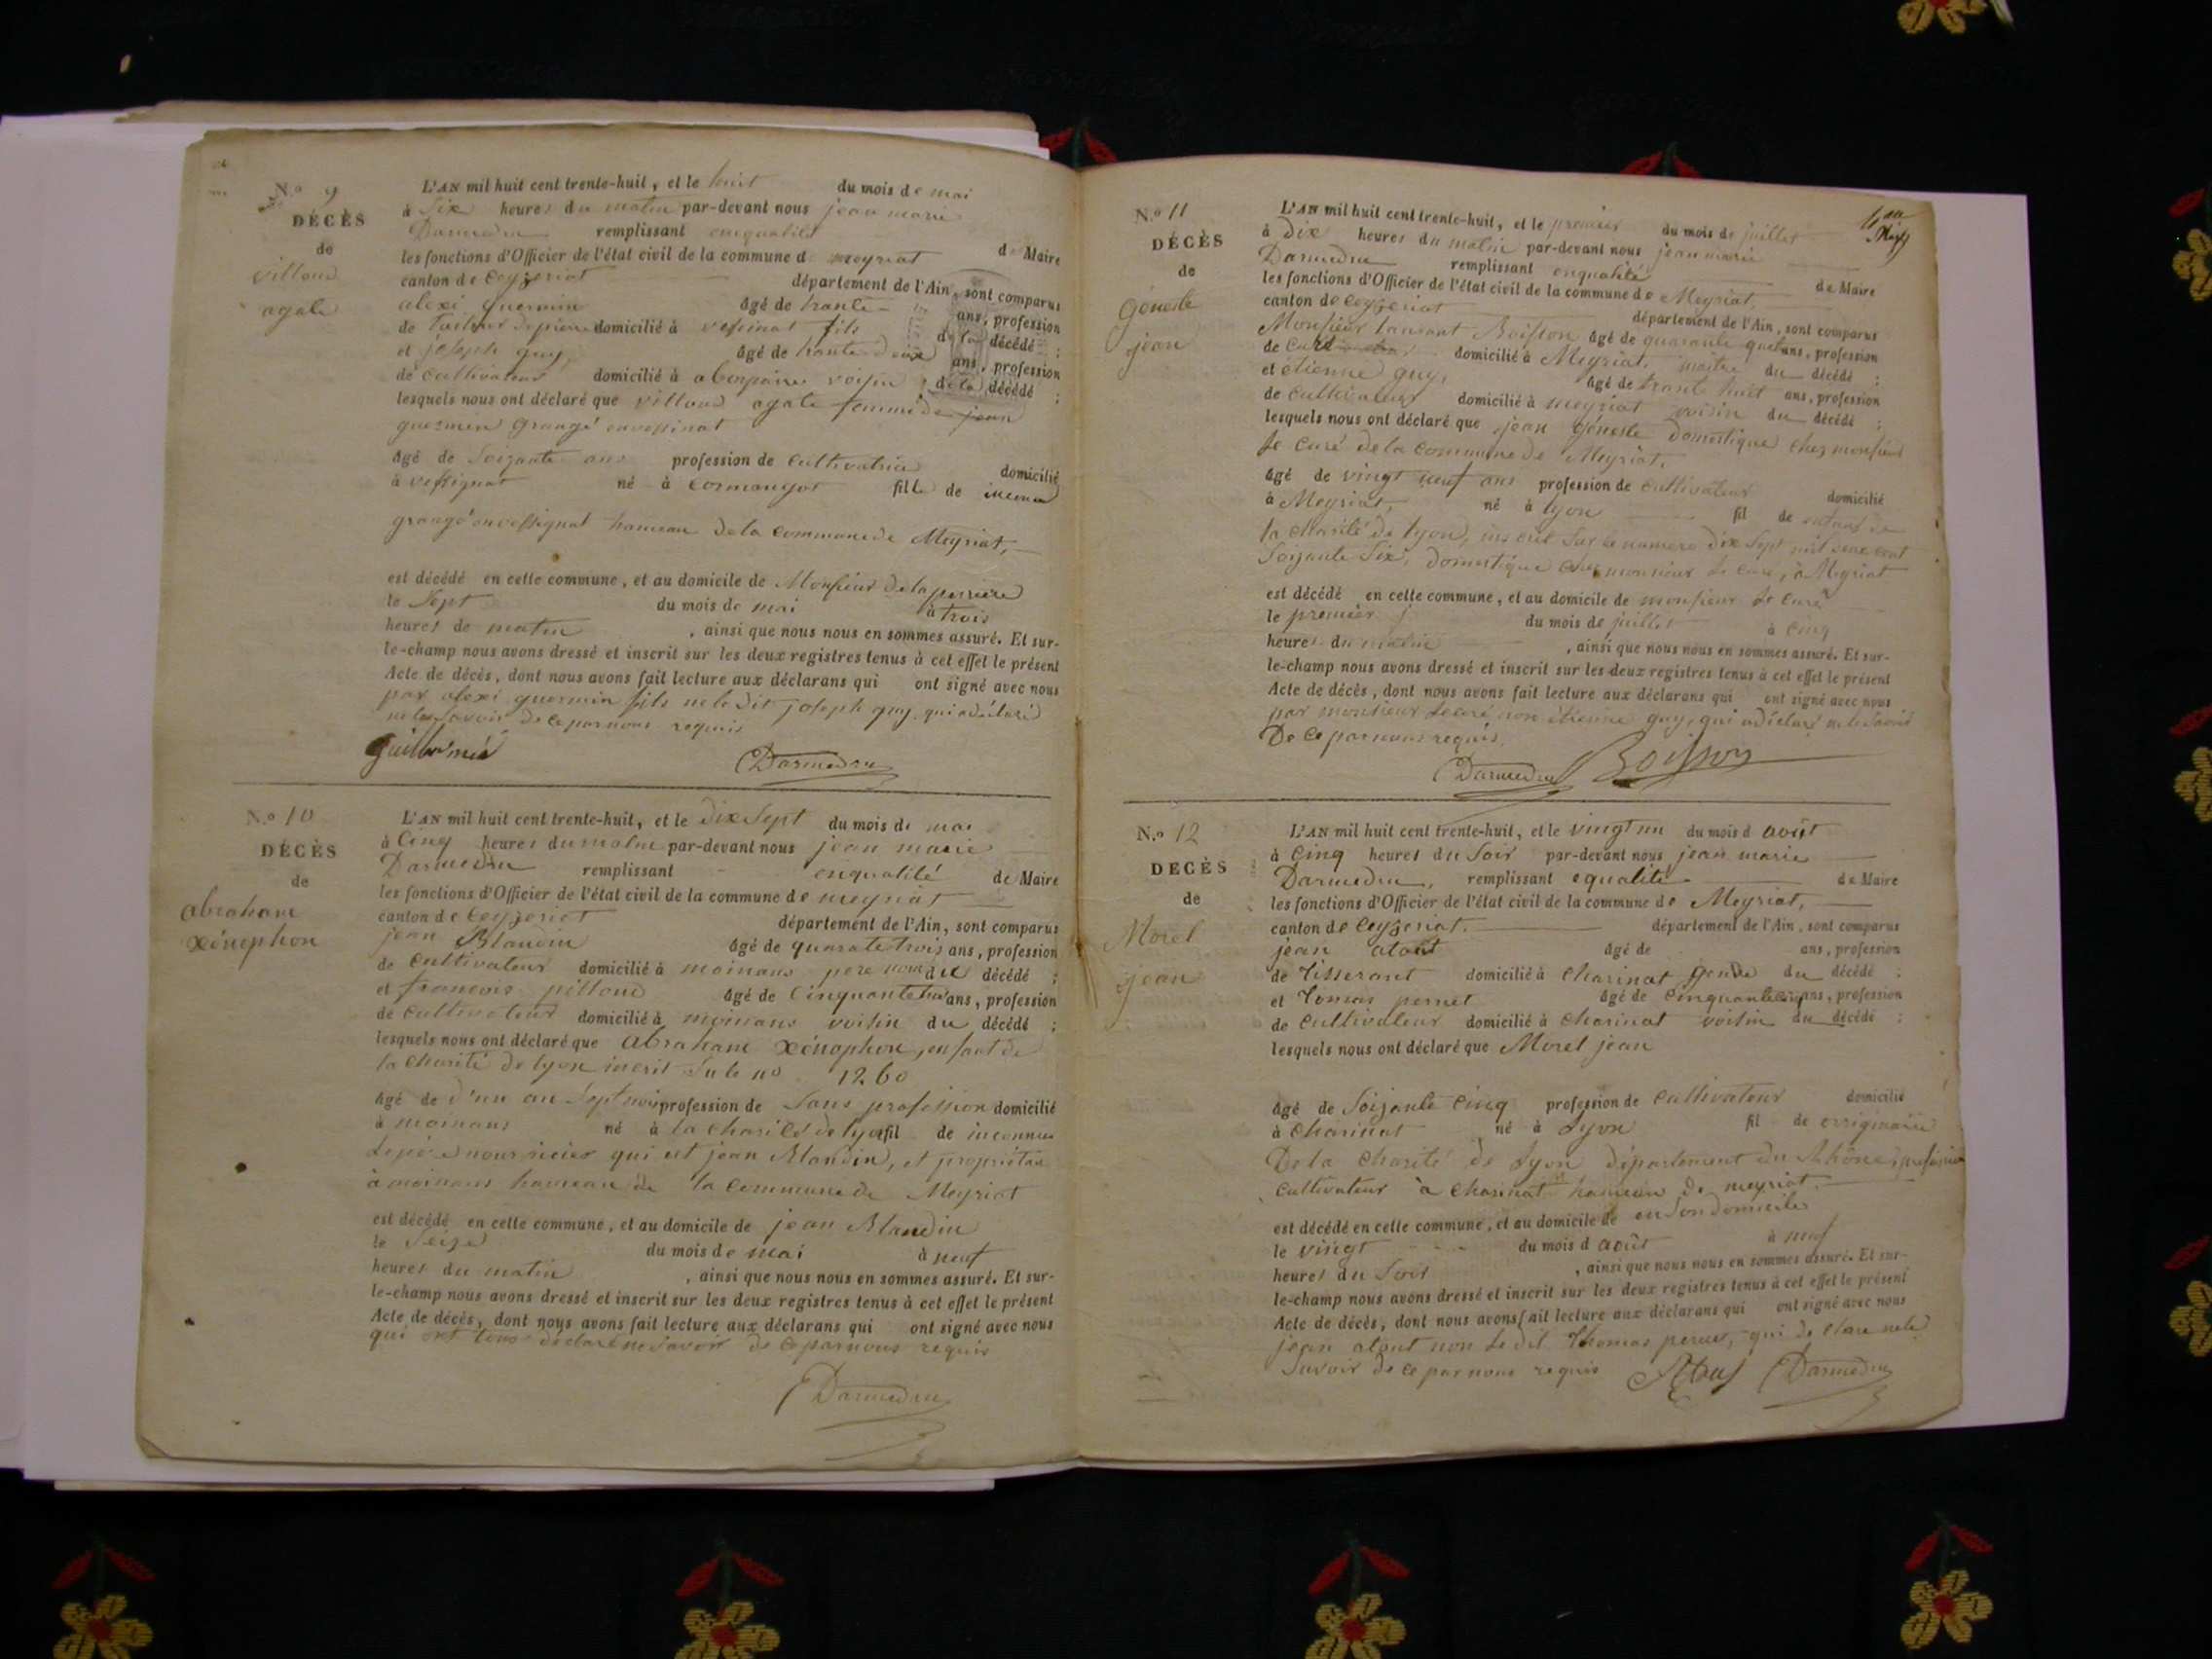 N.o 9
DÉCÈS
de
villoud
agate
L'AN mil huit cent trente-huit, et le huit du mois de mai
à Six heures du matin par-devant nous jean marie
Darmedru remplissant enqualité de Maire
les fonctions d'Officier de l'état civil de la commune d meyriat
canton de Ceyzeriat département de l'Ain, sont comparus
alexi guermin âgé de trante ans, profession
de tailleur de pierre domicilié à vessinat fils de la décédé ;
et joseph guy, âgé de trante deux ans, profession
de cultivateur domicilié à voisin de la décédé ;
lesquels nous ont déclaré que villoud agate femme de jean
guermin grangé envessinat
âgé de Soizante ans profession de cultivatrice domicilié
à vessignat né à cormangot fille de
grangé envessignat hameau de la commune de Meyriat,
est décédé en cette commune, et au domicile de Monsieur delaperriere
le Sept du mois de mai à trois
heures de matin, ainsi que nous nous en sommes assuré. Et sur-
le-champ nous avons dressé et inscrit sur les deux registres tenus à cet effet le présent
Acte de décès, dont nous avons fait lecture aux déclarans qui ont signé avec nous
par alexi guermin fils ne ledit joseph guy qui a déclaré
ne le savoir de ce par nous requis
Darmedru
N.o 10
DÉCÈS
de
abraham
xénophon
L'AN mil huit cent trente-huit, et le Dix Sept du mois de mai
à Cinq heures du matin par-devant nous jean marie
Darmedru remplissant enqualité de Maire
les fonctions d'Officier de l'état civil de la commune de meyriat
canton de Ceyzeriat département de l'Ain, sont comparus
jean Blandin âgé de quarate trois ans, profession
de Cultivateur domicilié à moinans pere nour du décédé ;
et francois pilloud âgé de Cinquante ans, profession
de Cultivateur domicilié à moinans voisin du décédé ;
lesquels nous ont déclaré que abraham xénophon, enfant de
la charité de lyon inscrit Su le no 1260
âgé de d'un an Sept mois profession de Sans profession domicilié
à moinans né à la charité de lyon fil de inconnu
Le père nourricier qui est jean Blandin, et propriétaire
à moinans hameau de la commune de Meyriat
est décédé en cette commune, et au domicile de jean Blandin
le Seize du mois de mai à neuf
heures du matin, ainsi que nous nous en sommes assuré. Et sur-
le-champ nous avons dressé et inscrit sur les deux registres tenus à cet effet le présent
Acte de décès, dont nous avons fait lecture aux déclarans qui ont signé avec nous
qui ont tous déclaré ne savoir de ce par nous requis
Darmedru
N.o 11
DÉCÈS
de
géneste
jean
L'AN mil huit cent trente-huit, et le premier du mois de juillet
à Dix heures du matin par-devant nous jean marie
Darmedru remplissant enqualité de Maire
les fonctions d'Officier de l'état civil de la commune de Meyriat
canton de Ceyzeriat département de l'Ain, sont comparus
Monsieur Laurant Boisson âgé de quarante quat ans, profession
de Curé domicilié à Meyriat, maitre du décédé ;
et étienne guy, âgé de trante huit ans, profession
de Cultivateur domicilié à meyriat voisin du décédé ;
lesquels nous ont déclaré que jean géneste domestique chez monsieur
Le curé de la commune de Meyriat,
âgé de vingt neuf ans profession de cultivateur domicilié
à Meyriat, né à lyon fil de enfant de
la charité de lyon, inscrit Sur le numero dix Sept mil deux cent
Soizante Six, domestique chez monsieur Le curé, à Meyriat
est décédé en cette commune, et au domicile de monsieur Le curé
le premier j du mois de juillet à Cinq
heures du matin, ainsi que nous nous en sommes assuré. Et sur-
le-champ nous avons dressé et inscrit sur les deux registres tenus à cet effet le présent
Acte de décès, dont nous avons fait lecture aux déclarans qui ont signé avec nous
par monsieur Le curé non étienne guy, qui a déclaré ne le savoir
De ce par nous requis.
Darmedru Boisson
N.o 12
DÉCÈS
de
Morel
jean
L'AN mil huit cent trente-huit, et le vingt un du mois d août
à Cinq heures du Soir par-devant nous jean marie
Darmedru, remplissant equalité de Maire
les fonctions d'Officier de l'état civil de la commune de Meyriat,
canton de Ceyzeriat. département de l'Ain, sont comparus
jean atout âgé de ans, profession
de Tisserant domicilié à Charinat gendre du décédé ;
et Tomas pernet âgé de Cinquante cinq ans, profession
de Cultivateur domicilié à Charinat voisin du décédé ;
lesquels nous ont déclaré que Morel jean
âgé de Soizante Cinq profession de Cultivateur domicilié
à Charinat né à Lyon fil de orriginaire
De la charité de Lyon département du Rhône,
Cultivateur à Charinat hameau de meyriat.
est décédé en cette commune, et au domicile de en Son domicile
le vingt du mois d août à neuf
heures du Soir, ainsi que nous nous en sommes assuré. Et sur-
le-champ nous avons dressé et inscrit sur les deux registres tenus à cet effet le présent
Acte de décès, dont nous avons fait lecture aux déclarans qui ont signé avec nous
jean atout non Ledit Thomas pernet, qui de clare ne le
Savoir de ce par nous requis Darmedru